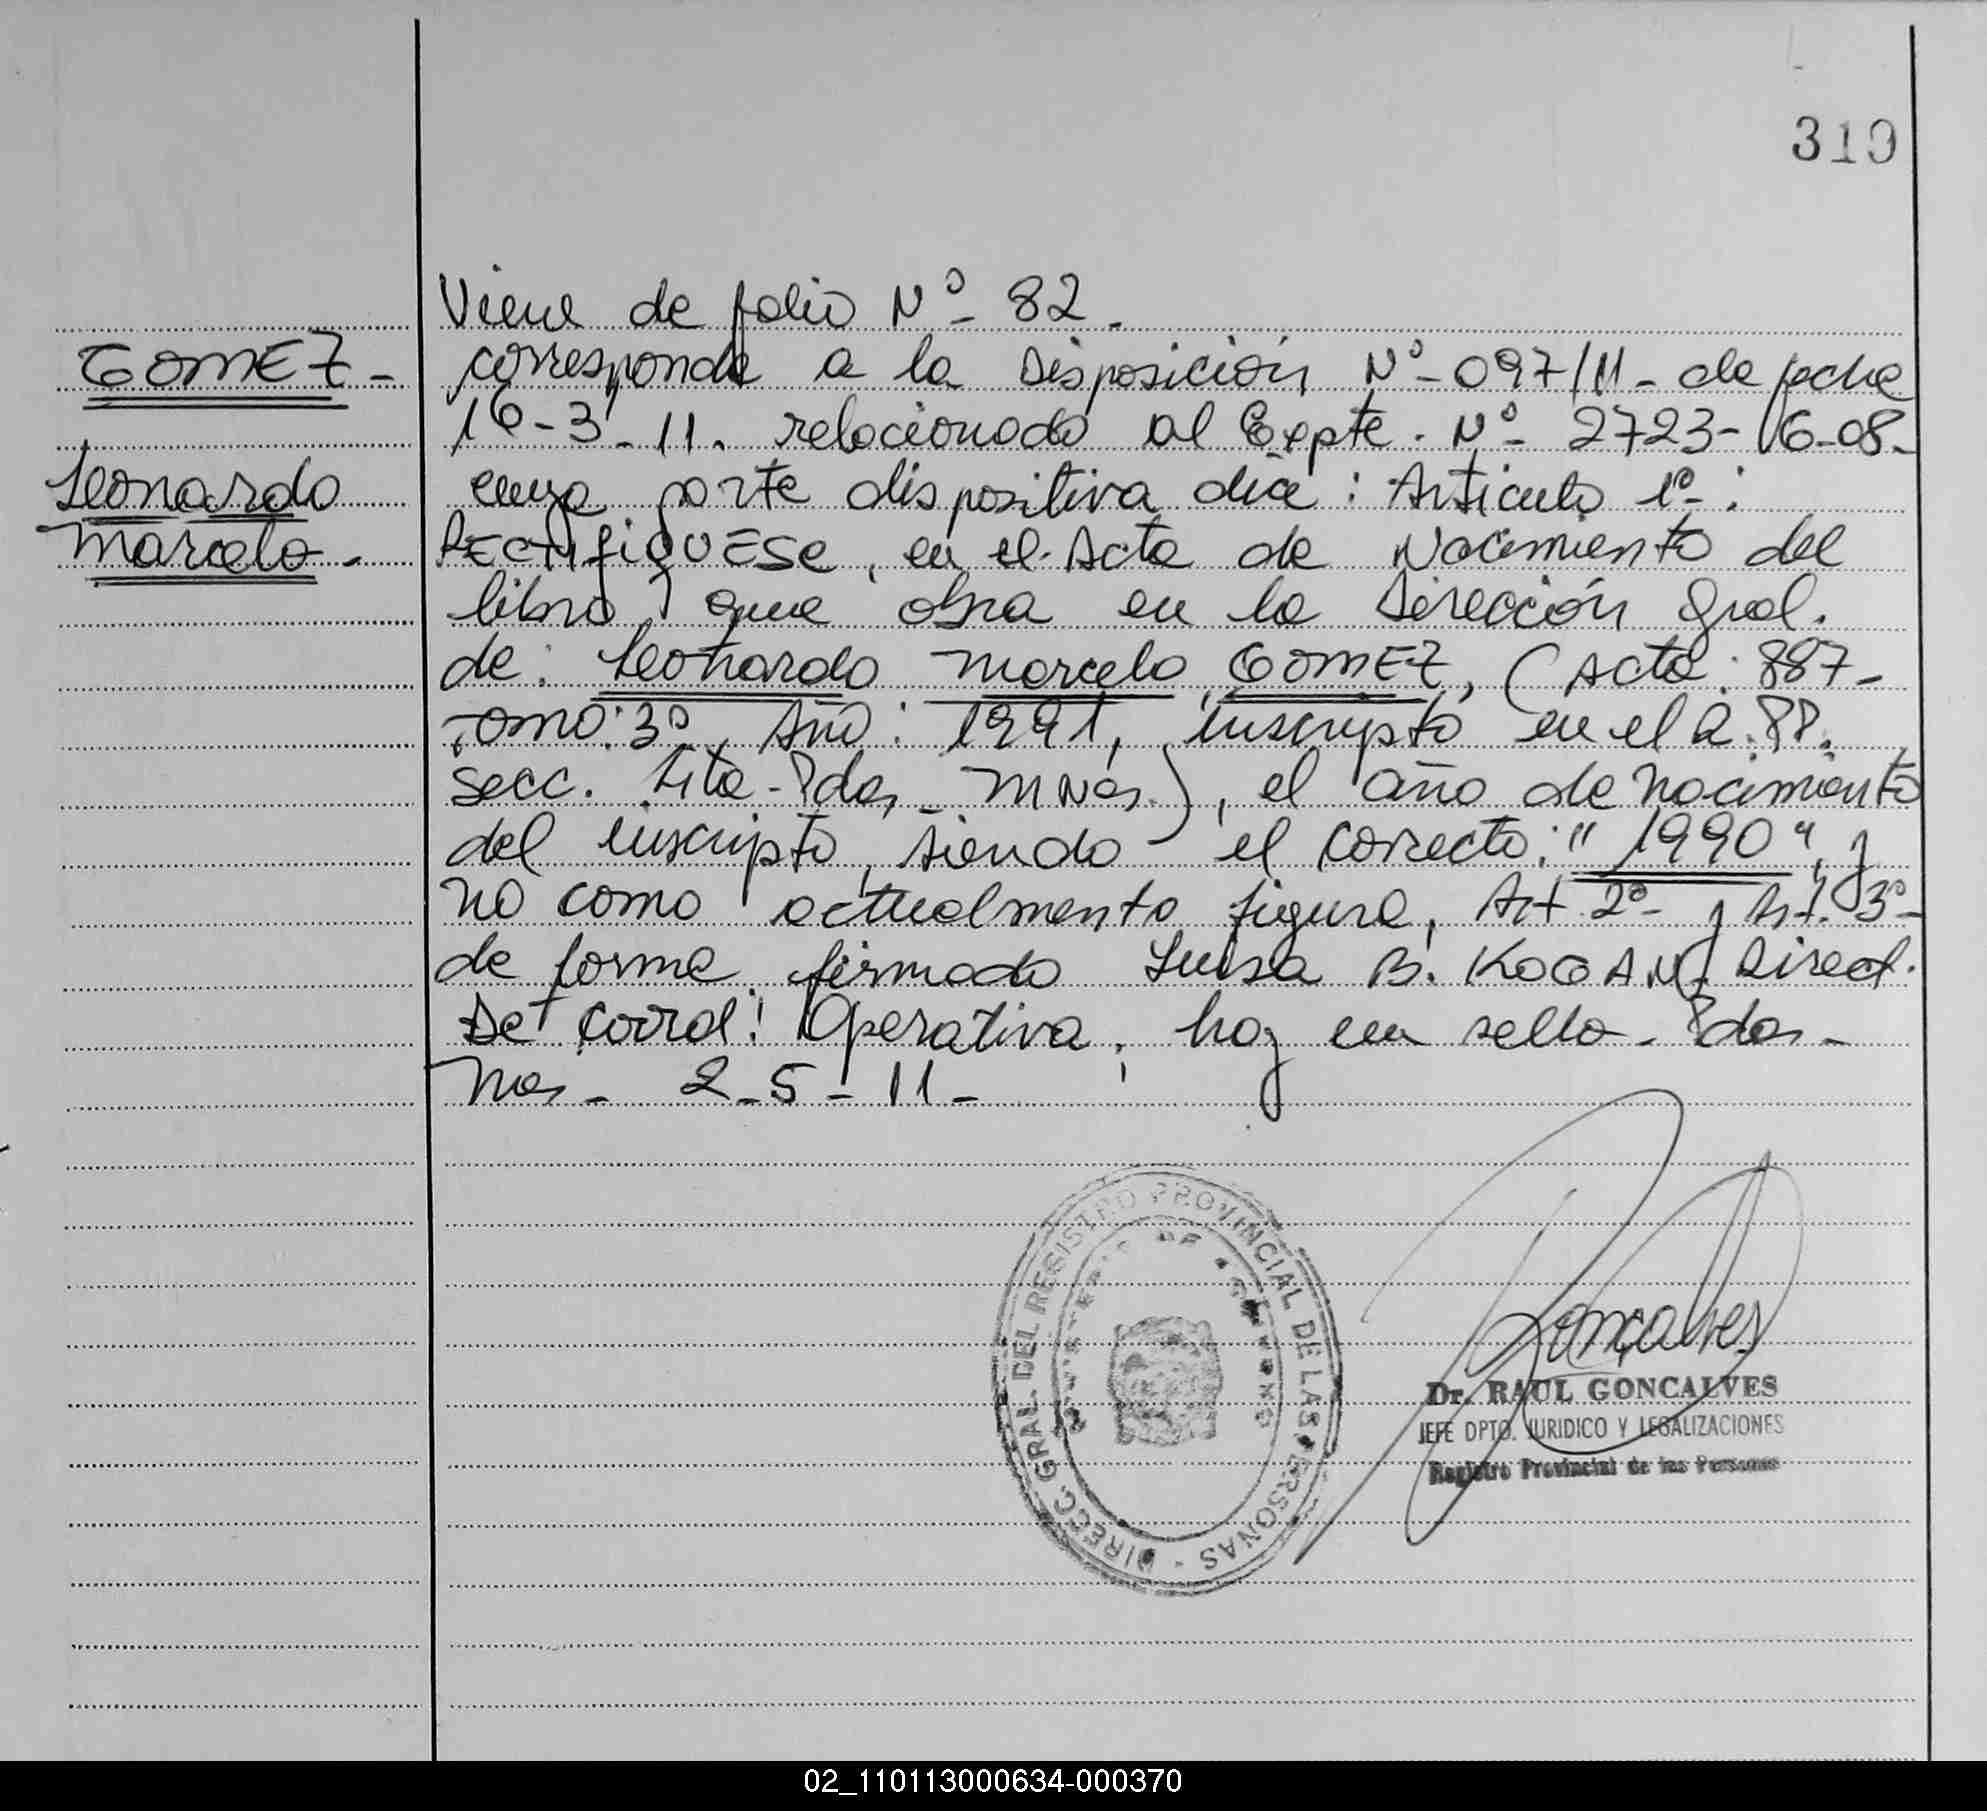 319
Viene de folio Nº 82.
GOMEZ - corresponde a la Disposición Nº - 097/11 - de fecha
16-3-11. relacionado al Expte. Nº - 2723-16-08-
Leonardo cuya parte dispositiva dice: Artículo 1º - :
Marcelo - RECTIFIQUESE, en el Acta de Nacimiento del
libro que obra en la Dirección Gral.
de: Leonardo Marcelo GOMEZ, (Acta: 887-
Tomo: 3º Año: 1991, inscripto en el R.PP.
secc. Pdas - Mnes.), el año de nacimiento
del inscripto, siendo el correcto: "1990", y
no como actualmente figura, Art 2º - y Art. 3º -
de forma, firmado Luisa B. KOGAN, Direct.
De Coord. Operativa, hay un sello - Pdas -
Mnes - 2-5-11 -
DIRECC. GRAL. DEL REGISTRO PROVINCIAL DE LAS PERSONAS -
MINISTERIO DE GOBIERNO
Goncalves
Dr. RAUL GONCALVES
JEFE DPTO. JURIDICO Y LEGALIZACIONES
Registro Provincial de las Personas
02_110113000634-000370